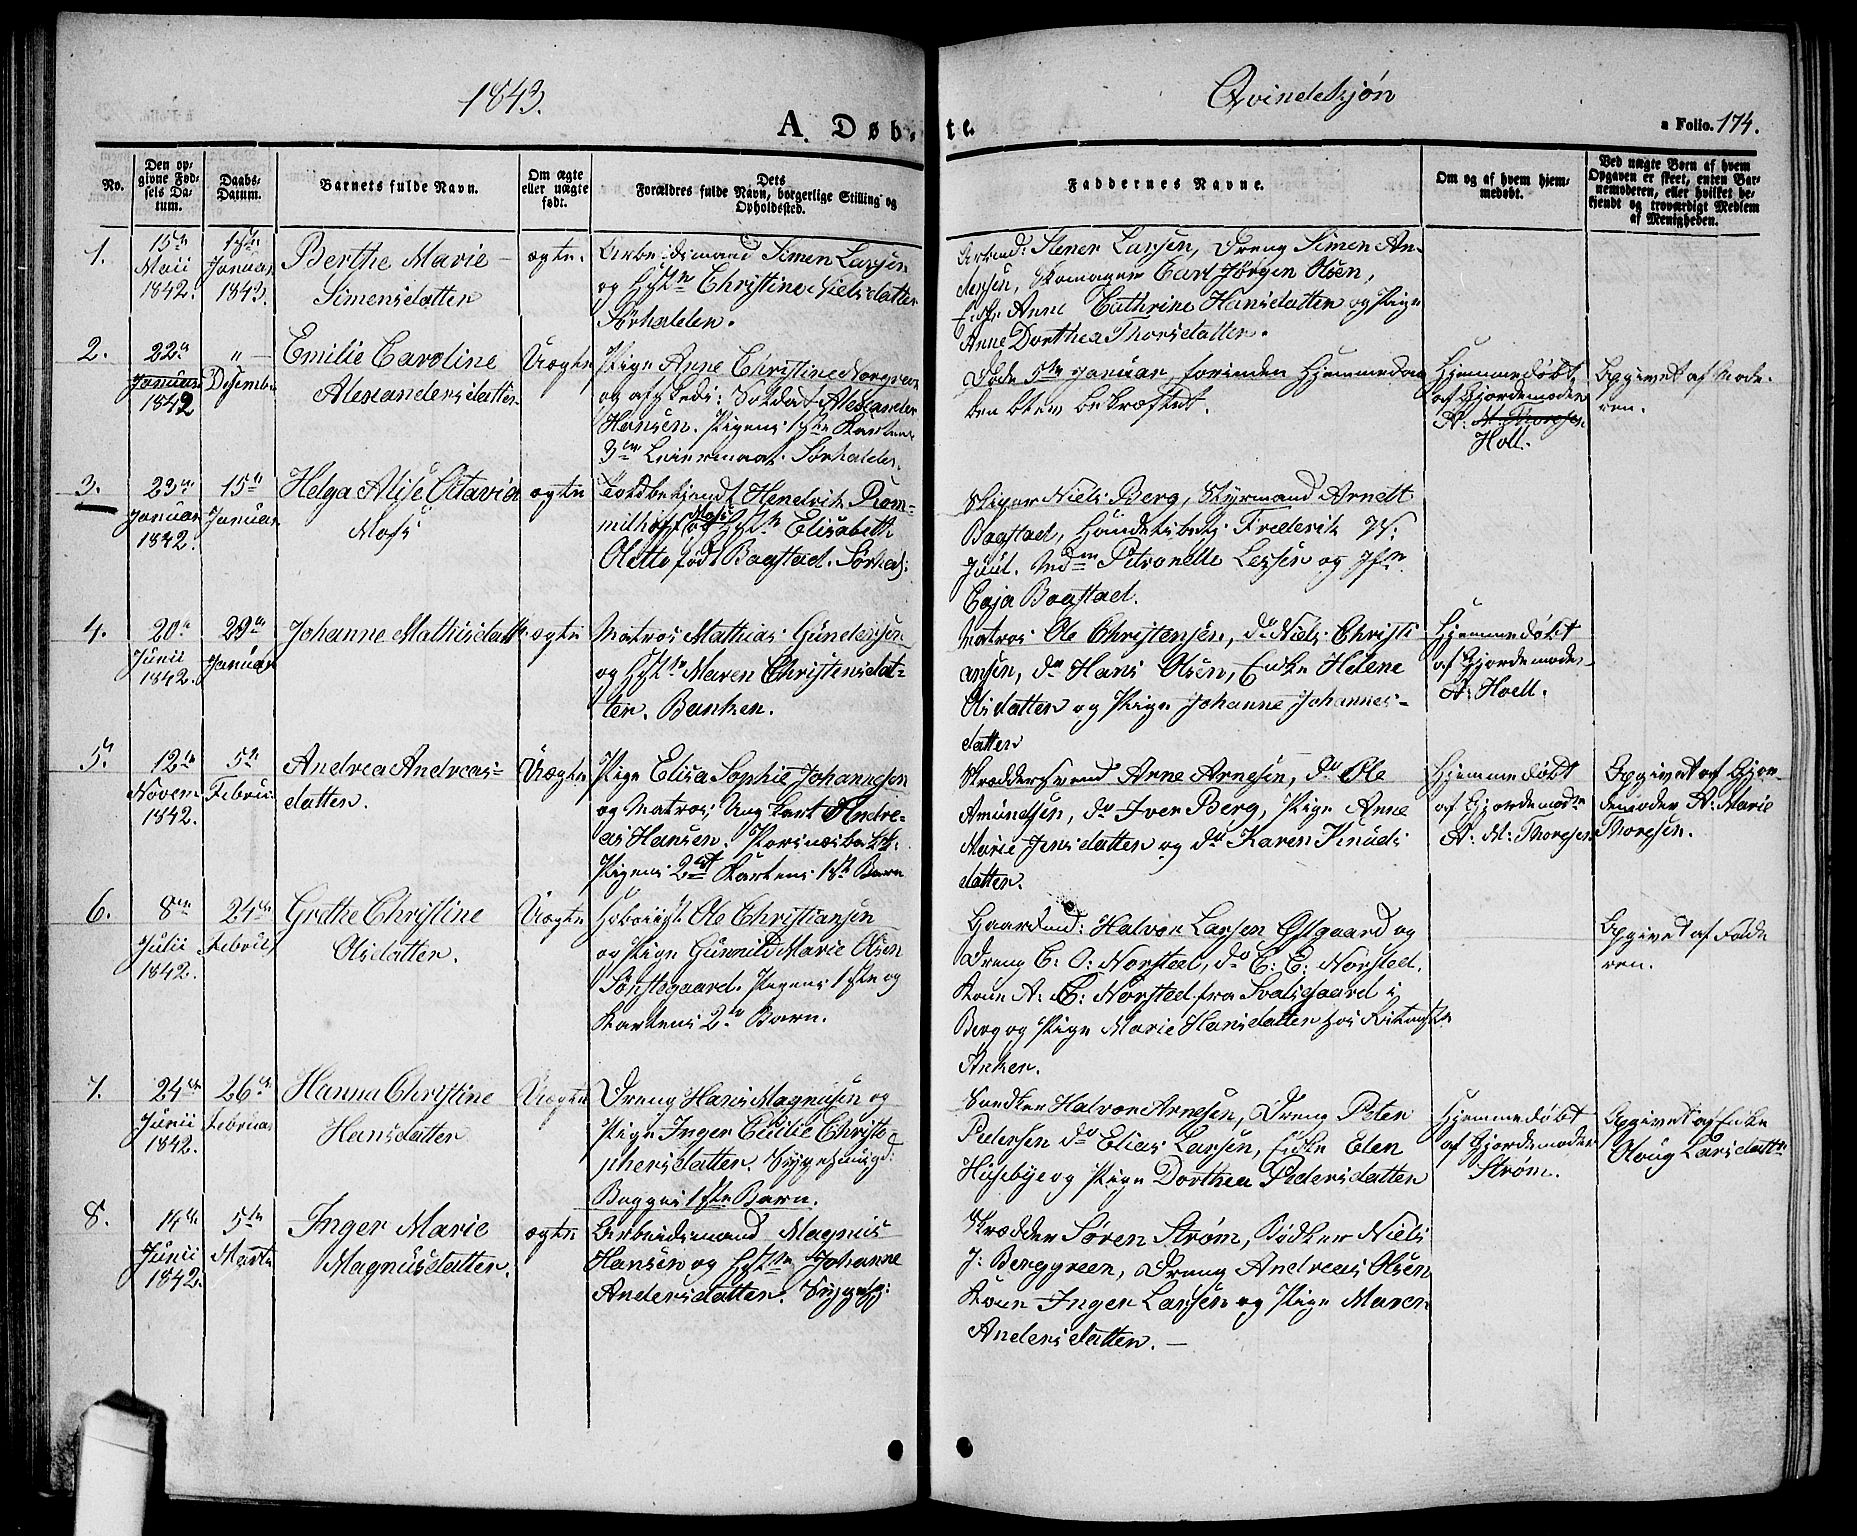 1843.
Qvindekjøn
A. Døb-
te.
a Folio. 174.
No.
Den op-
givne Fød-
sels Da-
tum.
Daabs-
Datum.
Barnets fulde Navn.
Om ægte
eller uægte
født.
Dets
Forældres fulde Navn, borgerlige Stilling og
Opholdssted.
Faddernes Navne.
Om og af hvem hjem-
medøbt.
Ved uægte Børn af hvem
Opgaven er skeet, enten Bar-
nemoderen, eller hvilket be-
kjendt og troværdigt Medlem
af Menigheden.
1.
15de
Maii
1842.
Januar
1843.
Berthe Marie
Simensdatter
ægte.
Arbeidsmand Simen Larsen
og Hst Christine Nielsdatter
Sørhalden.
Arbmd: Stener Larsen, Dreng Simen An-
dersen, Skomager Carl Jørgen Olsen,
Enke Anne Cathrine Hansdatter og Pige
Anne Dorthea Thorsdatter.
2.
22de
Januar
1842
"
Desember
Emilie Caroline
Alexandersdatter
Uægte
Pige Anne Christine Norgreen
og afskeds: Soldat Alexander
Hansen. Pigens 1ste Karlens
3die Leiermaal. Sørhalden.
Døde 5te Januar forinden Hjemmedaa
ben blev bekræftet.
Hjemmedøbt
af Gjordemoder
A: M: Thoresen
Holl.
Opgivet af Mode-
ren.
3.
23de
Januar
1842.
15de
Januar
Helga Alise Octavia
Moss
ægte
Toldbetjendt Hendrik Rom-
milhoff Moss og Hst Elisabeth
Olette født Bagstad. Sørhald:
Skiper Niels Berg, Styrmand Arnett
Bagstad, Handelsbetj: Frederik W:
Juul. Mdm Petronelle Lessen og Jfr
Caja Bagstad.
4.
20de
Junii
1842.
29de
Januar
Johanne Mathisdatter
ægte
Matros Mathias Gundersen
og Hst Maren Christensdat-
ter. Banken.
Matros Ole Christensen, do Niels Christi
ansen, do Hans Olsen, Enke Helene
Olsdatter og Pige Johanne Johannes-
datter
Hjemmedøbt
af Gjordemoder
A: Holl.
5.
12te
Novem
1842.
5te
Februar
Andrea Andreas-
datter.
Uægte
Pige Elisa Sophie Johannesen
og Matros, Ung karl Andre-
as Hansen. Porsnæsbakk:
Pigens 2det Karlens 1ste Barn
Skræddersvend Arne Arnesen, do Ole
Amundsen, do Iver Berg, Pige Anne
Marie Jensdatter og do Karen Knuds
datter.
Hjemmedøbt
af Gjordemoder
A: M: Thoresen
Opgivet af Gjor-
demoder A: Marie
Thoresen.
6.
8de
Julii
1842.
24de
Februar
Grethe Christine
Olsdatter.
Uægte
Ole Christiansen
og Pige Gunnild Marie Olsen
Pigens 1ste og
Karlens 2de Barn.
Gaardmd: Halvor Larsen Østgaard og
Dreng C: O: Norsted, do C: E: Norsted.
Kone A: C: Norsted fra Svalsgaard i
Berg og Pige Marie Hansdatter hos
Anker.
Opgivet af Fade
ren.
7.
24de
Junii
1842.
26de
Februar
Hanna Christine
Hansdatter
Uægte
Dreng Hans Magnusen og
Pige Inger Cecilie Christo-
phersdatter.
Begges 1ste Barn.
Snedker Halvor Arnesen, Dreng Peter
Pedersen do Elias Larsen, Enke Elen
Husebye og Pige Dorthea Pedersdatter
Hjemmedøbt
af Gjordemoder
Strøm.
Opgivet af Enke
Oloug Larsdatter
8.
14de
Junii
1842.
5te
Marts
Inger Marie
Magnusdatter.
ægte
Arbeidsmand Magnus
Hansen og Hst Johanne
Andersdatter.
Skrædder Søren Strøm, Bødker Niels
J: Berggreen, Dreng Andreas Olsen
Kone Inger Larsen og Pige Maren
Andersdatter. —